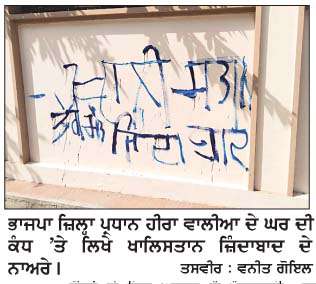 ਜ਼ਿੰਦਾਬਾਦ
ਭਾਜਪਾ ਜ਼ਿਲ੍ਹਾ ਪ੍ਰਧਾਨ ਹੀਰਾ ਵਾਲੀਆ ਦੇ ਘਰ ਦੀ
ਕੰਧ ’ਤੇ ਲਿਖੇ ਖਾਲਿਸਤਾਨ ਜ਼ਿੰਦਾਬਾਦ ਦੇ
ਨਾਅਰੇ। ਤਸਵੀਰ : ਵਨੀਤ ਗੋਇਲ